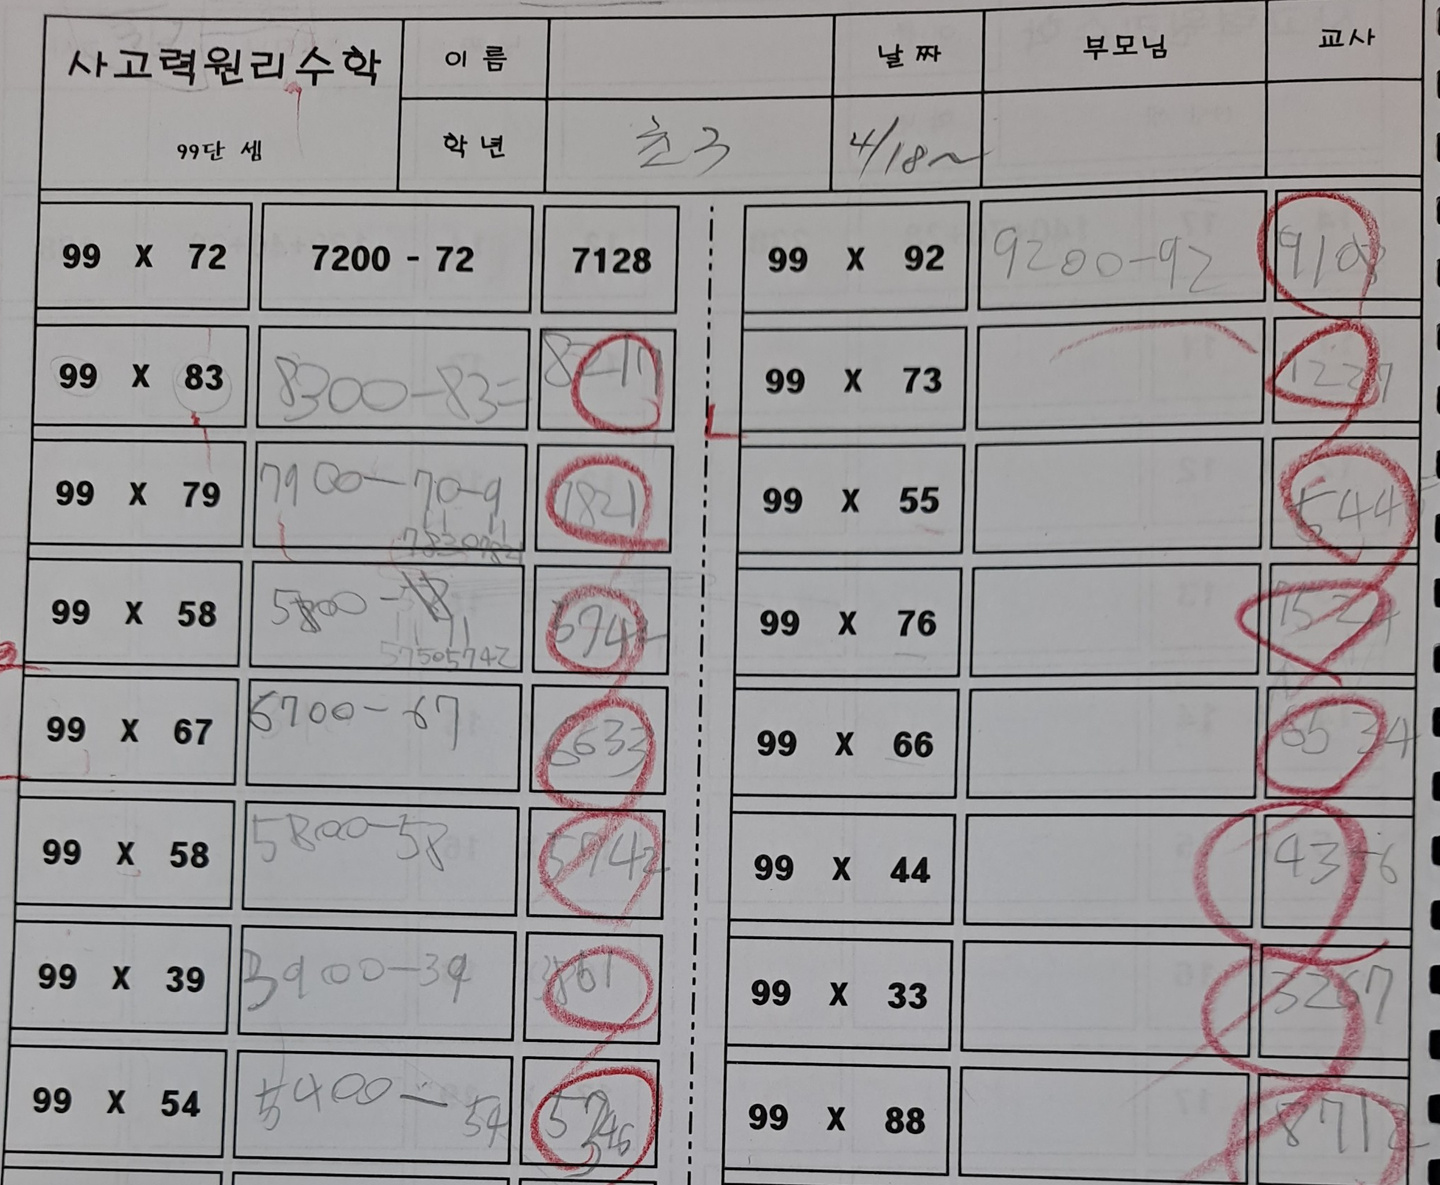 사고력원리수학 이 름 날 짜 부모님 교사
99단 셈 학 년 초3 4/18~
99 X 72 7200 - 72 7128 99 X 92 9200-92 9108
99 X 83 8300-83= 8217 99 X 73
99 X 79 7900-70-9 7821 99 X 55 5445
7830 7821
99 X 58 5800- 99 X 76
5750 5742
99 X 67 6700-67 6633 99 X 66 6534
99 X 58 5800-58 5742 99 X 44
99 X 39 3900-39 3861 99 X 33 3267
99 X 54 5400-54 99 X 88 8712